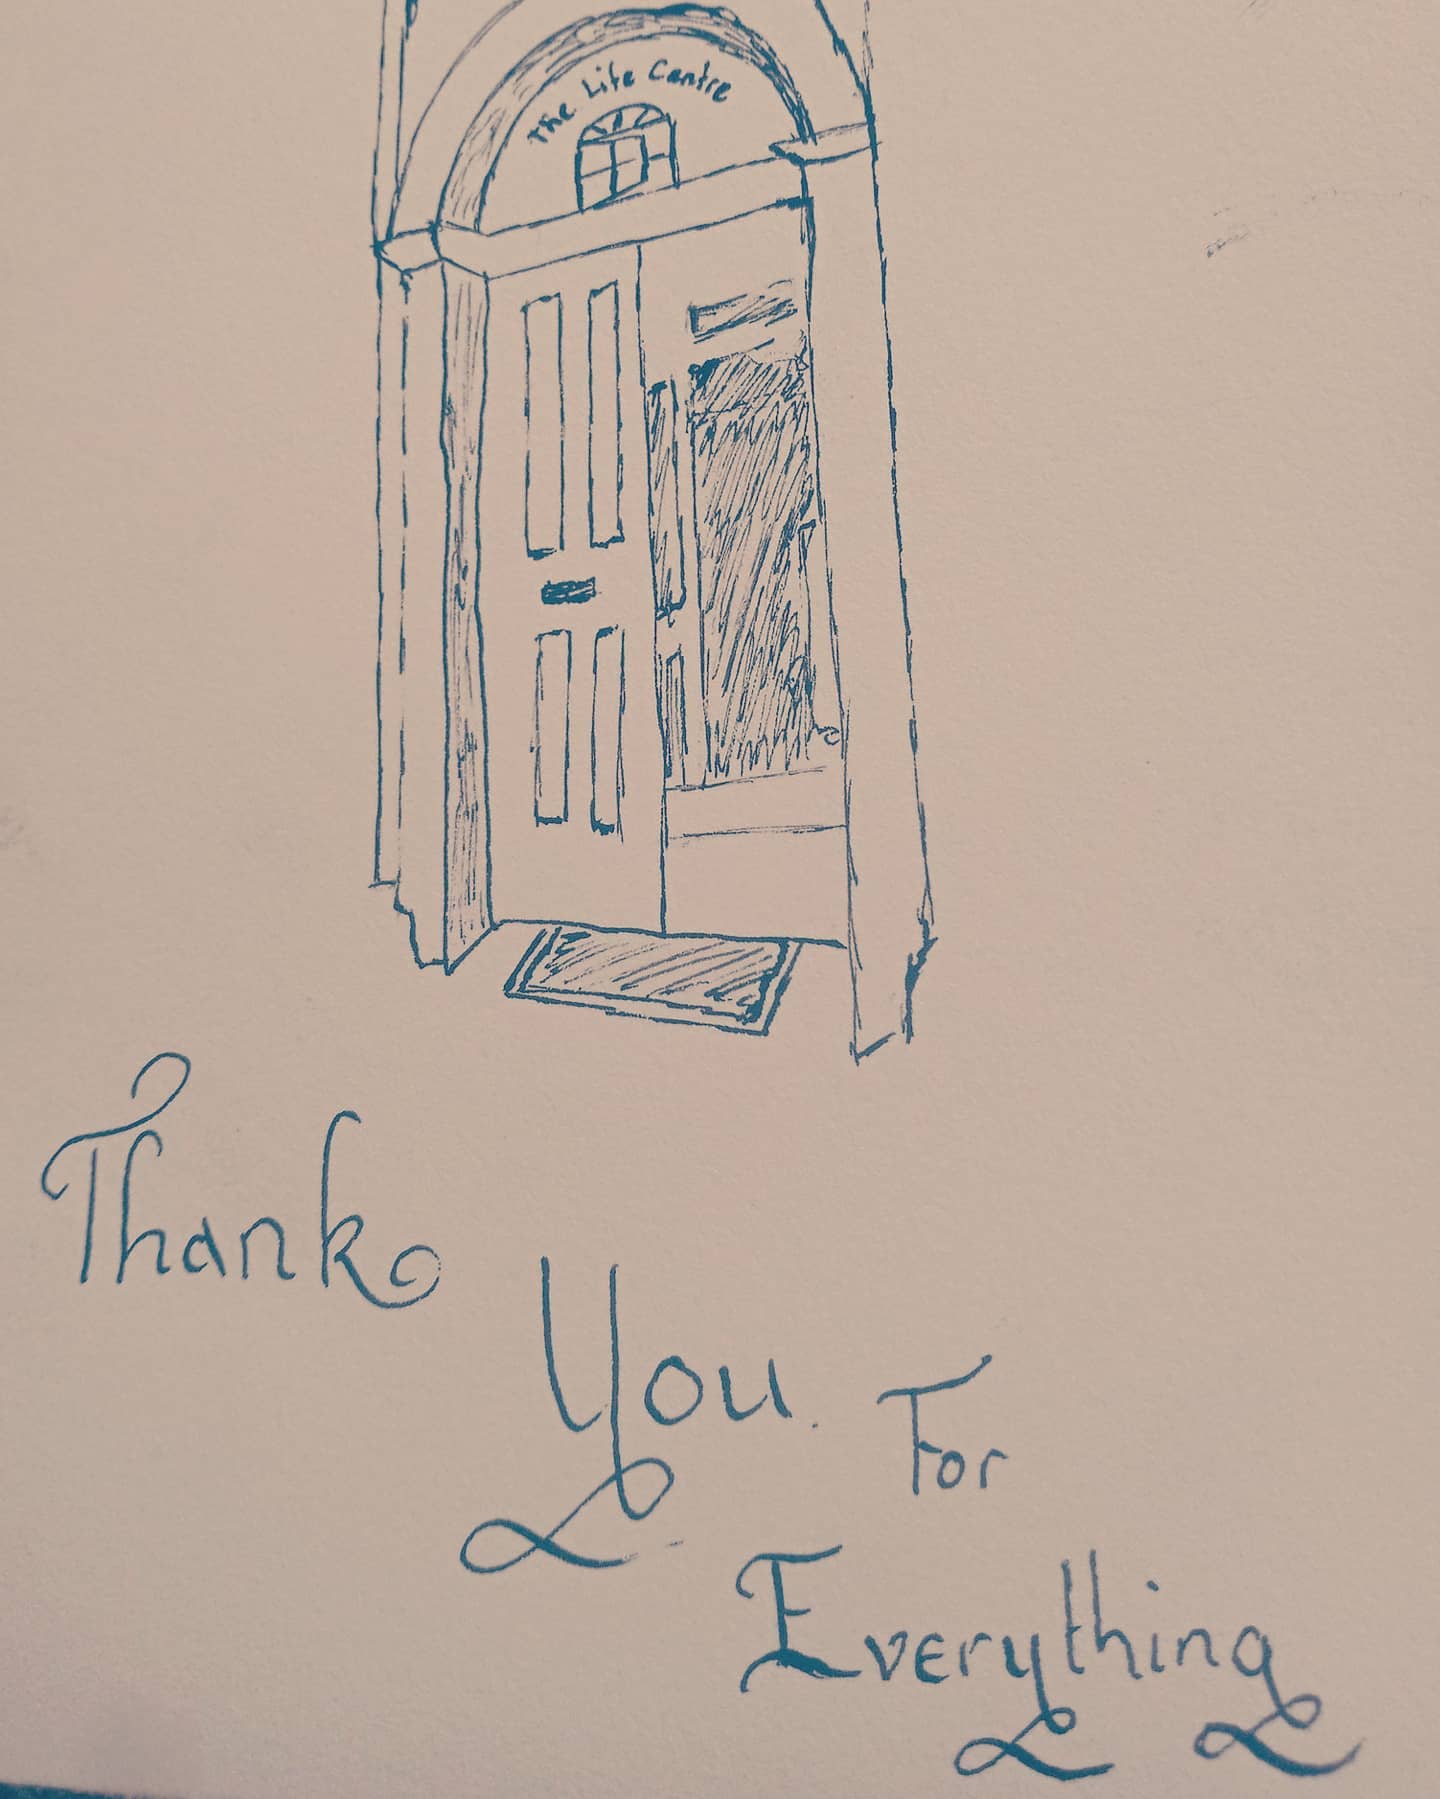 The Life Centre
Thank
You
For
Everything